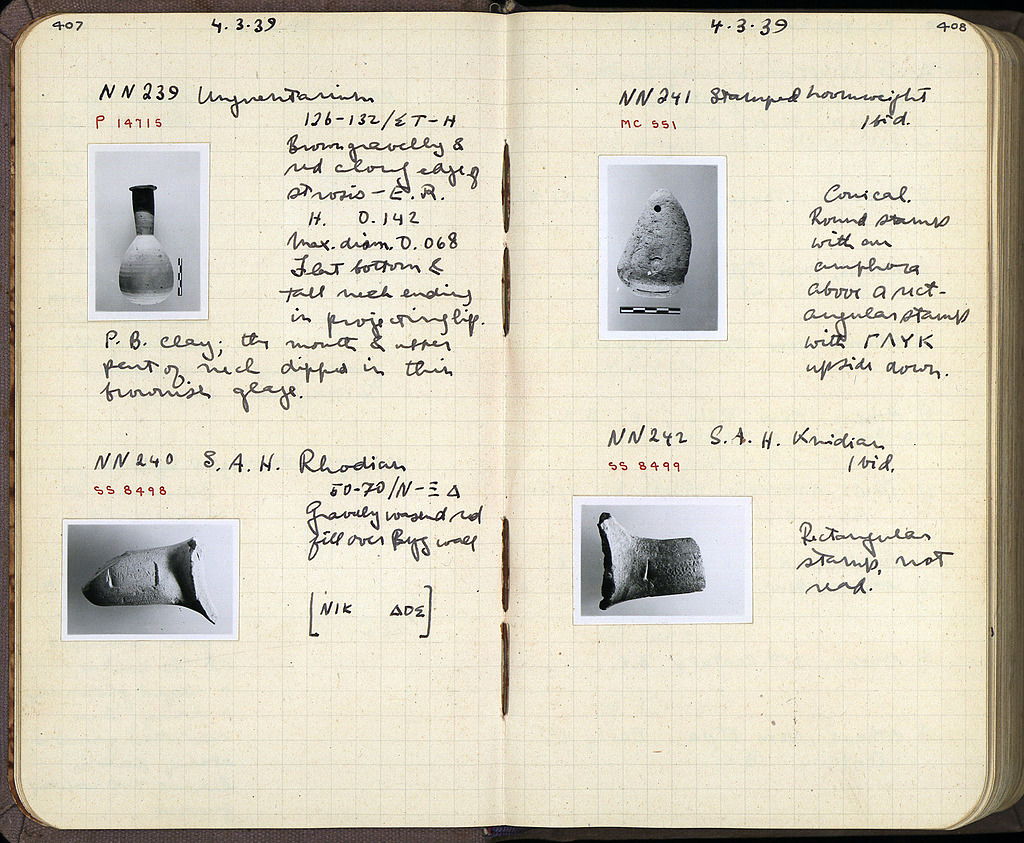 407
4.3.39
NN 239 Unguentarium
P 14715
126-132/ΣΤ-Η
Brown gravelly &
red along edge of
strosis - E.R.
H. 0.142
Max. diam. 0.068
Flat bottom &
tall neck ending
in projecting lip.
P.B. clay; the mouth & upper
part of neck dipped in thin
brownish glaze.
NN 240 S.A.H. Rhodian
SS 8498
50-70/Ν-ΞΔ
Gravelly washed red
fill over Byz wall
[ΝΙΚ ΔΟΣ]
4.3.39
408
NN 241 Stamped loomweight
MC 551
Ibid.
Conical.
Round stamp
with an
amphora
above a rect-
angular stamp
with ΓΛΥΚ
upside down.
NN 242 S.A.H. Knidian
SS 8499
Ibid.
Rectangular
stamp, not
read.